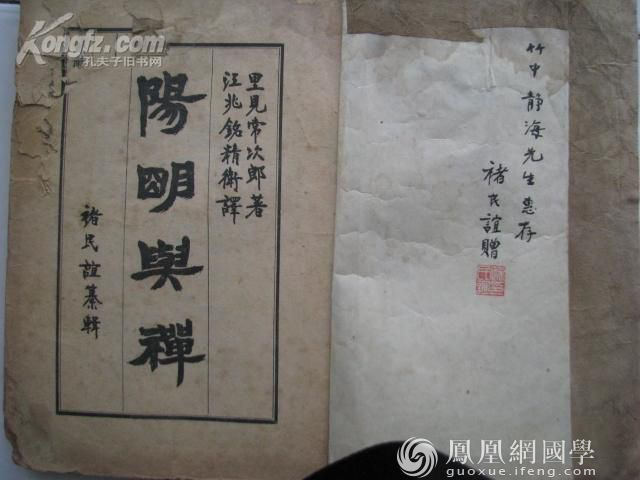 Kongfz.com
孔夫子旧书网
竹中靜海先生惠存
褚民誼贈
里見常次郎著
汪兆銘精衛譯
陽明與禪
褚民誼纂輯
鳳凰網國學
guoxue.ifeng.com